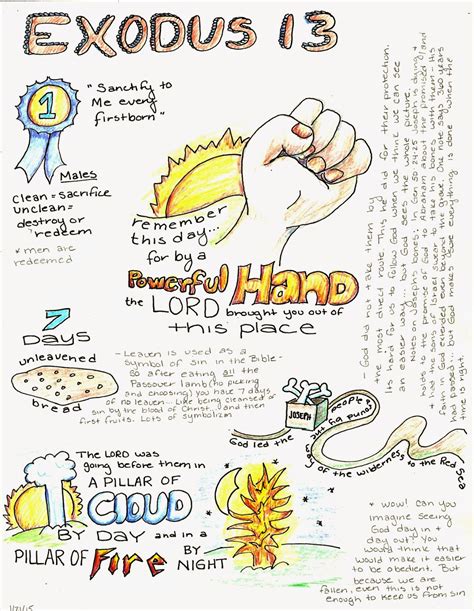 EXODUS 13
1
"Sanctify to
Me every
firstborn"
Males
clean = sacrifice
unclean =
destroy or
redeem
* men are
redeemed
remember
this day...
for by a
Powerful Hand
the LORD brought you out of
this place
7
Days
unleavened
bread
- Leaven is used as a
symbol of sin in the Bible -
So after eating all the
Passover lamb (no picking
and choosing) you have 7 days
of no leaven... like being cleansed of
sin by the blood of Christ, and then
first fruits. Lots of symbolism
God did not take them by
the most direct route. This he did for their protection.
Its hard for us to follow God when we think we can see
an easier way... but God sees the whole picture.
Notes on Joseph's bones: In Gen 50:24-25 Joseph is dying &
held to the promise of God to Abraham about the promised land
& had the sons of Israel swear to take his bones with them - His
Faith in God extended even beyond the grave. One note says 360 years
had passed, but God makes sure everything is done when the
time is right.
JOSEPH
God led the people around by the
way of the wilderness to the Red Sea
The LORD was
going before them in
A PILLAR OF
CLOUD
BY DAY and in a
PILLAR OF Fire BY
NIGHT
* Wow! Can you
imagine seeing
God day in &
day out? You
would think that
would make it easier
to be obedient. But
because we are
fallen, even this is not
enough to keep us from sin